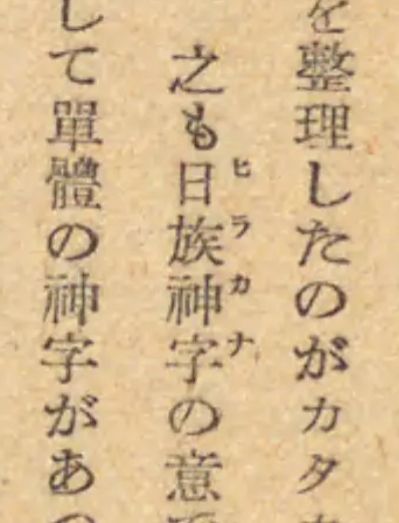 を整理したのがカタ
之も日族神字の意
ヒラカナ
して單體の神字があ